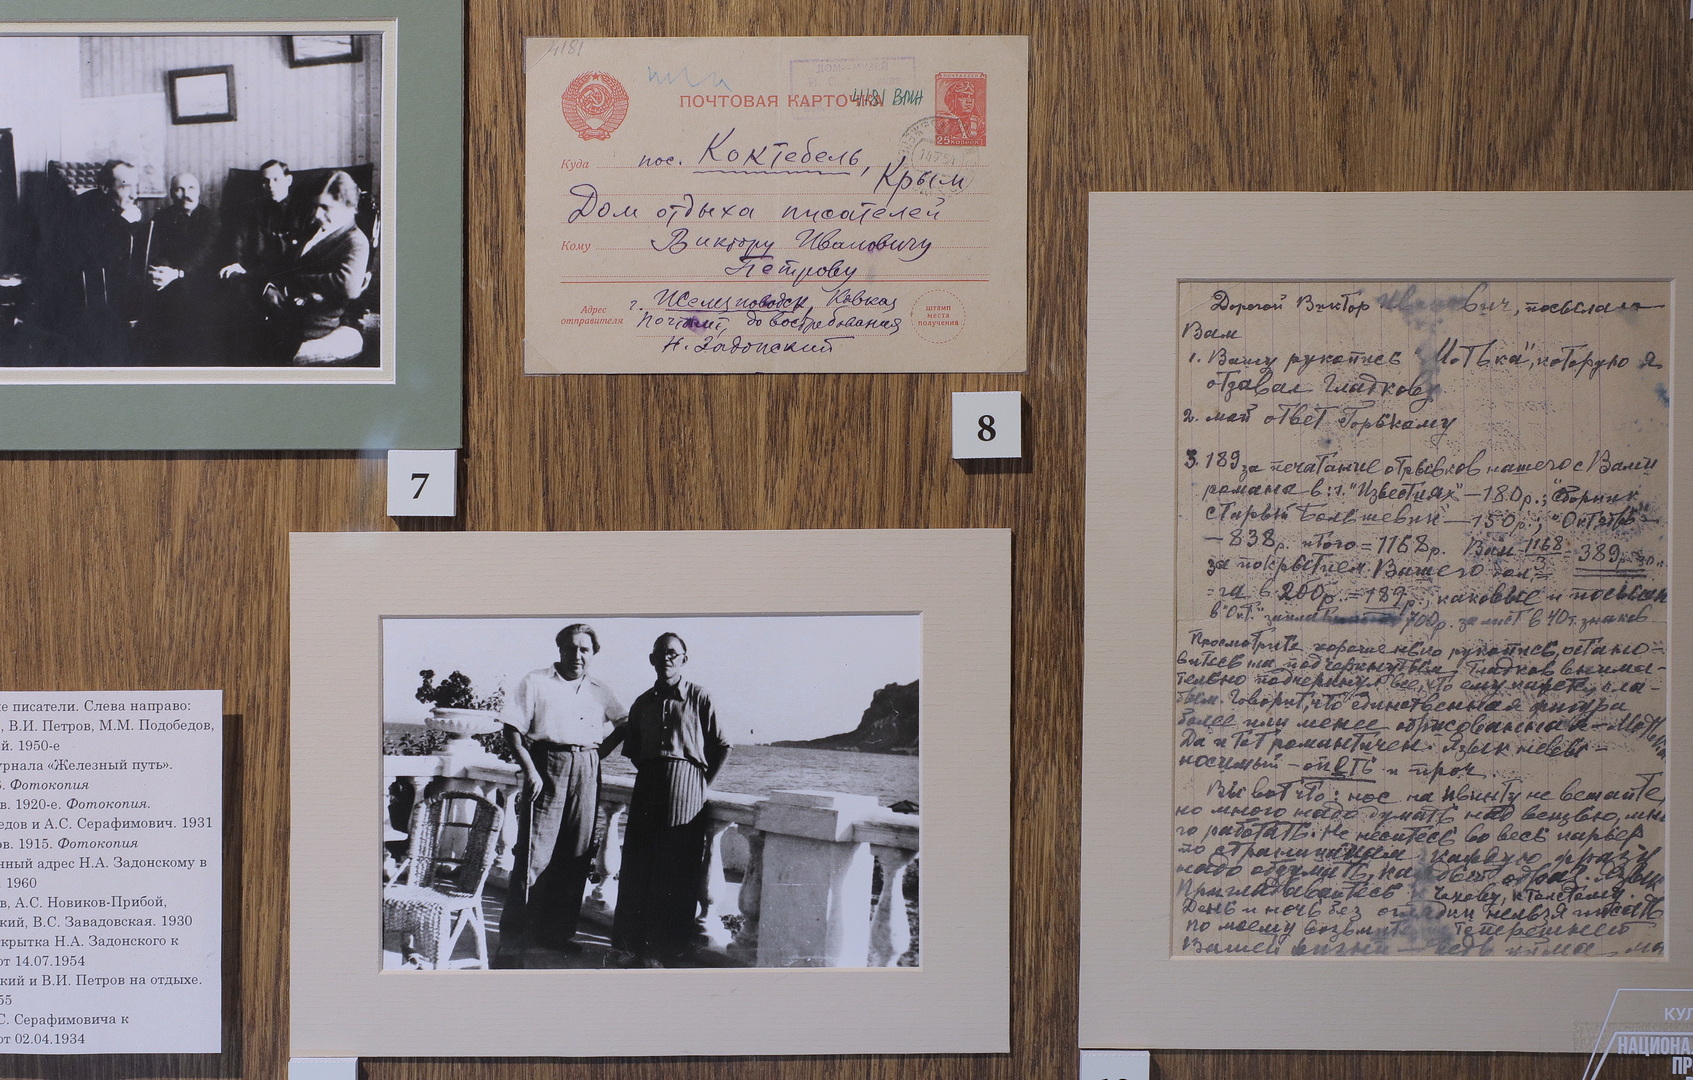 4181
ПОЧТОВАЯ КАРТОЧКА
4181 ВПН
25 КОПЕЕК
Куда пос. Коктебель, Крым
Дом отдыха писателей
Кому Виктору Ивановичу
Петрову
Адрес отправителя
г. Железноводск, Кавказ
Почтамт, до востребования
Н. Задонский
штамп места получения
8
7
Дорогой Виктор Иванович, посылаю
Вам
1. Вашу рукопись "Мотька", которую я
отдавал Гладкову
2. мой ответ Горькому
3. 189 за печатание отрывков нашего с Вами
романа в: г. "Известиях" – 180р.; "Сборник
старый большевик" – 150р.; "Октябрь" –
– 838р. итого = 1168р. Вам 1168/3 = 389р.
за покрытием Вашего
в 200р. = 189р., каковые и посылаю
700р. за лист в 40т. знаков
Просмотрите хорошенько рукопись, остано-
витесь на подчеркнутым. Гладков внима-
тельно подчеркнул все, что ему
Говорит, что единственная фигура
более или менее обрисованная – Мотька
Да и тот романтичен. Язык невы-
носимый – и проч.
Вы вот что: нос на квинту не вешайте,
но много надо думать над вещью, мно-
го работать. Не неситесь во весь карьер
по страницам каждую фразу
надо обдумать, каждый образ.
Приглядывайтесь к Чехову, к Толстому.
День и ночь без оглядки нельзя писать
По моему возьмите
Вашей жизни
е писатели. Слева направо:
, В.И. Петров, М.М. Подобедов,
й. 1950-е
урнала «Железный путь».
. Фотокопия
в. 1920-е. Фотокопия.
едов и А.С. Серафимович. 1931
ов. 1915. Фотокопия
нный адрес Н.А. Задонскому в
1960
в, А.С. Новиков-Прибой,
кий, В.С. Завадовская. 1930
скрытка Н.А. Задонского к
от 14.07.1954
кий и В.И. Петров на отдыхе.
55
С. Серафимовича к
от 02.04.1934
КУЛ
НАЦИОНА
ПР